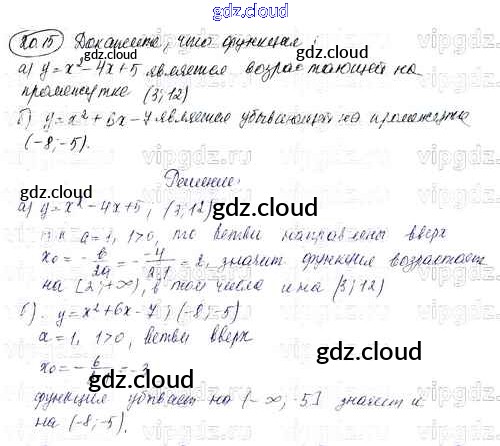 gdz.cloud
20.15 Докажите, что функция:
а) y = x² – 4x + 5 является возрастающей на
промежутке (3; 12)
б) y = x² + 6x – 7 является убывающей на промежутке
(-8; -5).
Решение:
а) y = x² – 4x + 5, (3; 12)
т.к a = 1, 1>0, то ветви направлены вверх
x₀ = -b/2a = - -4/2·1 = 2, значит функция возрастает
на [2; +∞), в том числе и на (3; 12)
б). y = x² + 6x – 7; (-8; -5)
a = 1, 1>0, ветви вверх
x₀ = - 6/ = -3
функция убывает на (-∞; -5] значит и
на (-8; -5).
gdz.cloud
gdz.cloud
gdz.cloud
gdz.cloud
gdz.cloud
vipgdz.ru